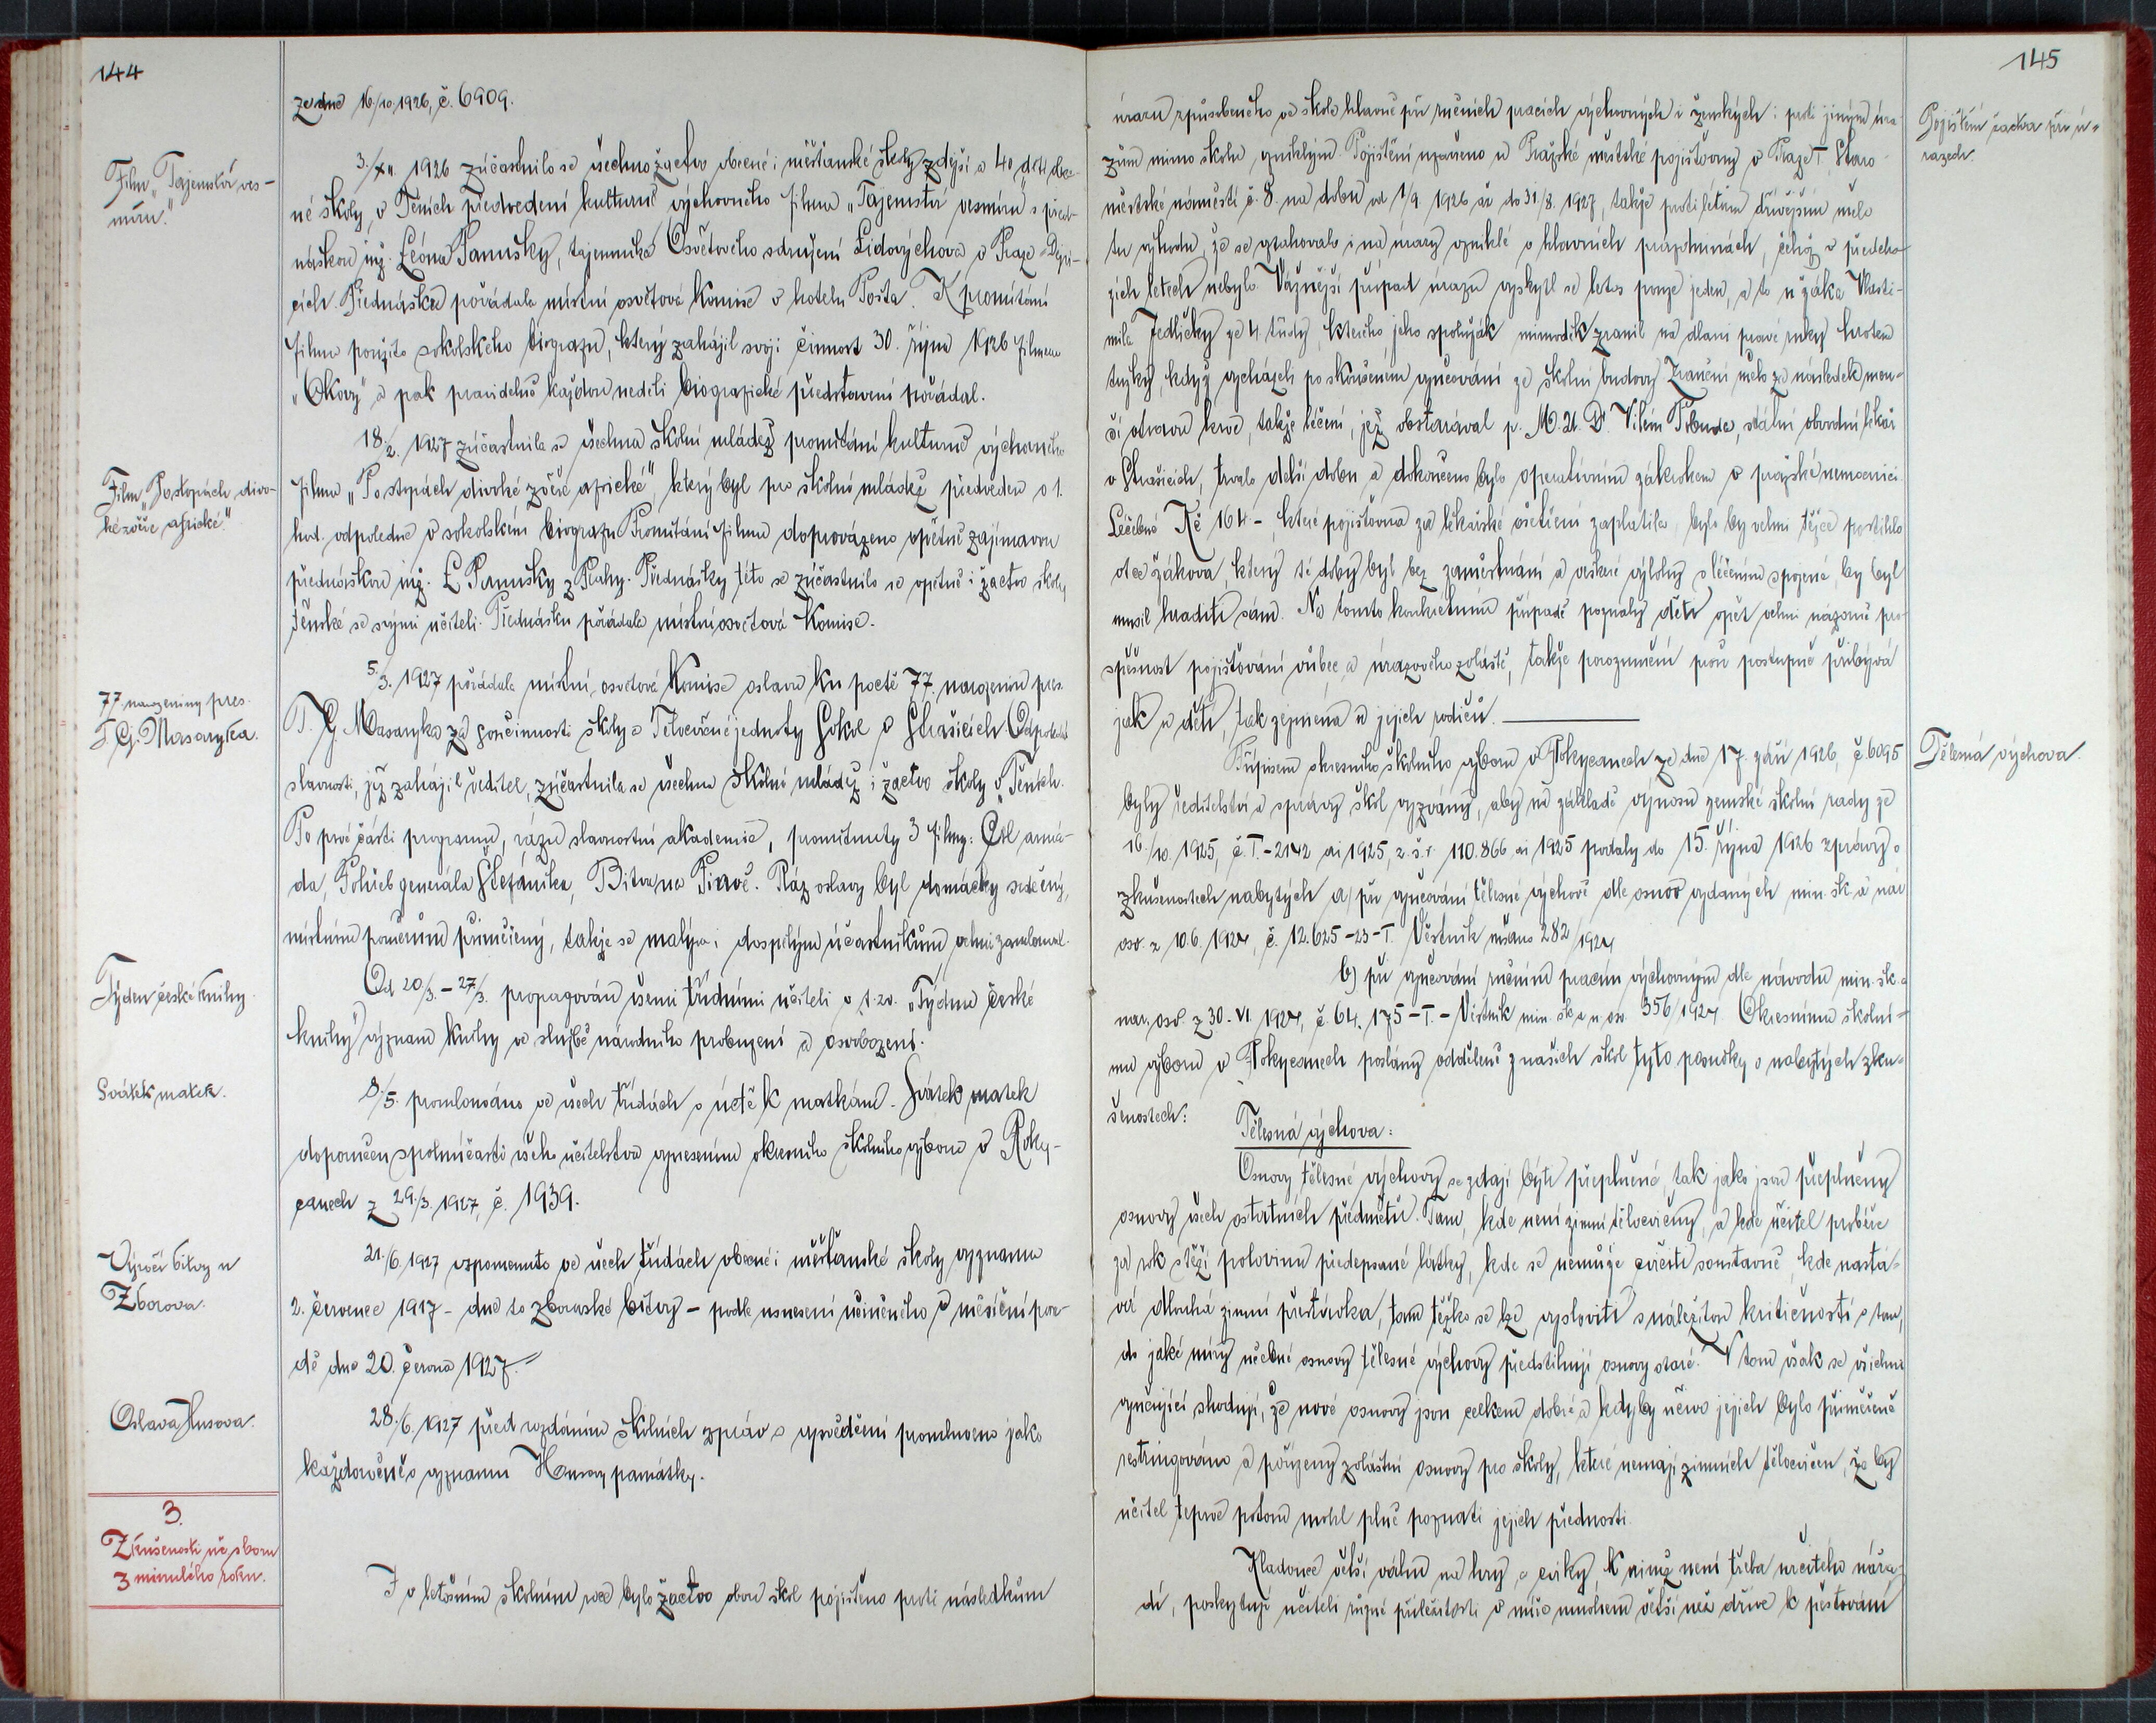 144
ze dne 16./10. 1926, č. 6909.
Film „Tajemství ves-
míru."
3./XII. 1926 zúčastnilo se všechno žactvo obecné i měšťanské školy zdejší a 40 dětí obec-
né školy v Těních předvedení kulturně výchovného filmu „Tajemství vesmíru" s před-
náškou inž. Léona Panušky, tajemníka Osvětového sdružení Lidovýchova v Praze -
cích. Přednášku pořádala místní osvětová komise v hotelu Pošta. K promítání
filmu použito sokolského biografu, který zahájil svoji činnost 30. října 1926 filmem
„Okovy" a pak pravidelně každou neděli biografická představení pořádal.
Film „Po stopách divo-
ké zvěře africké."
18./2. 1927 zúčastnila se všechna školní mládež promítání kulturně výchovného
filmu „Po stopách divoké zvěře africké", který byl pro školní mládež předveden o 1.
hod. odpoledne v sokolském biografu. Promítání filmu doprovázeno opětně zajímavou
přednáškou inž. L. Panušky z Prahy. Přednášky této se zúčastnilo se opětně i žactvo školy
těnské se svými učiteli. Přednášku pořádala místní osvětová komise.
77. narozeniny pres.
T. G. Masaryka.
5./3. 1927 pořádala místní osvětová komise oslavu ku poctě 77. narozenin pres.
T. G. Masaryka za součinnosti školy a Tělocvičné jednoty Sokol v Strašicích. Odpolední
slavnosti, již zahájil ředitel, zúčastnila se všechna školní mládež i žactvo školy v Těních.
Po prvé části programu, rázu slavnostní akademie, promítnuty 3 filmy: Čsl. armá-
da, Pohřeb generála Štefánika, Bitva na Piavě. Ráz oslavy byl domácky srdečný,
místním poměrům přiměřený, takže se malým i dospělým účastníkům velmi zamlouval.
Týden české knihy.
Od 20/3. - 27/3. propagován všemi třídními učiteli v t. zv. „Týdnu české
knihy" význam knihy ve službě národního probuzení a osvobození.
Svátek matek.
8./5. promlouváno ve všech třídách o úctě k matkám. Svátek matek
doporučen spoluúčasti všeho učitelstva vynesením okresního školního výboru v Roky-
canech z 29./3. 1927, č. 1939.
Výročí bitvy u
Zborova.
21./6. 1927 vzpomenuto ve všech třídách obecné i měšťanské školy významu
2. července 1917 - dne to zborovské bitvy - podle usnesení učiněného v měsíční pora-
dě dne 20. června 1927.
Oslava Husova.
28./6. 1927 před rozdáním školních zpráv a vysvědčení promluveno jako
každoročně o významu Husovy památky.
3.
Zkušenosti uč. sboru
z minulého roku.
I v letošním školním roce bylo žactvo obou škol pojištěno proti následkům
145
Pojištění žactva při ú-
razech.
úrazu způsobeného ve škole hlavně při ručních pracích výchovných i ženských i proti jiným úra-
zům mimo školu vzniklým. Pojištění uzavřeno u Pražské městské pojišťovny v Praze I, Staro-
městské náměstí č. 8. na dobu od 1/9. 1926 až do 31./8. 1927, takže proti létům dřívějším mělo
tu výhodu, že se vztahovalo i na úrazy vzniklé o hlavních prázdninách, čehož v předcho-
zích letech nebylo. Vážnější případ úrazu vyskytl se letos pouze jeden, a to u žáka Vlasti-
mila Jedličky ze 4. třídy, kterého jeho spolužák mimoděk zranil na dlani pravé ruky hrotem
tužky, když vycházeli po skončeném vyučování ze školní budovy. Zranění mělo za následek men-
ší otravu krve, takže léčení, jež obstarával p. M. U. Dr. Vilém Tobuda, státní obvodní lékař
v Strašicích, trvalo delší dobu a dokončeno bylo operativním zákrokem v pražské nemocnici.
Léčebné Kč 164 -, které pojišťovna za lékařské ošetření zaplatila, bylo by velmi těžce postihlo
otce žákova, který té doby byl bez zaměstnání a veškeré výlohy s léčením spojené, by byl
musil hraditi sám. Na tomto konkretním případě poznaly děti opět velmi názorně pro-
spěšnost pojišťování vůbec a úrazového zvláště, takže porozumění proň postupně přibývá
jak u dětí, tak zejména u jejich rodičů.
Tělesná výchova.
Přípisem okresního školního výboru v Rokycanech ze dne 17. září 1926, č. 6095
byly ředitelství a správy škol vyzvány, aby na základě výnosu zemské školní rady ze
16./10. 1925, č. I.-2142 ai 1925, z. š. r. 110.866 ai 1925 podaly do 15. října 1926 zprávy o
zkušenostech nabytých a/ při vyučování tělesné výchově dle osnov vydaných min. šk. a nár.
osv. z 10. 6. 1924, č. 12.625-23-I. Věstník mšano 282/1924
b) při vyučování ručním pracím výchovným dle návodu min. šk. a
nár. osv. z 30. VI. 1924, č. 64.175-I. - Věstník min. šk. a n. osv. 356/1924. Okresnímu školní-
mu výboru v Rokycanech poslány odděleně z našich škol tyto posudky o nabytých zku-
šenostech:
Tělesná výchova:
Osnovy tělesné výchovy se zdají býti přeplněné, tak jako jsou přeplněny
osnovy všech ostatních předmětů. Tam, kde není zimní tělocvičny, a kde učitel probéře
za rok stěží polovinu předepsané látky, kde se nemůže cvičiti soustavně, kde nastá-
vá dlouhá zimní přestávka, tam těžko se lze vysloviti s náležitou kritičností o tom,
do jaké míry učebné osnovy tělesné výchovy předstihují osnovy staré. V tom však se všichni
vyučující shodují, že nové osnovy jsou celkem dobré a kdyby učivo jejich bylo přiměřeně
restringováno a pořízeny zvláštní osnovy pro školy, které nemají zimních tělocvičen, že by
učitel teprve potom mohl plně poznati jejich přednosti.
Kladouce větší váhu na hry a cviky, k nimž není třeba určitého nářa-
dí, poskytují učiteli různé příležitosti v míře mnohem větší než dříve k pěstování